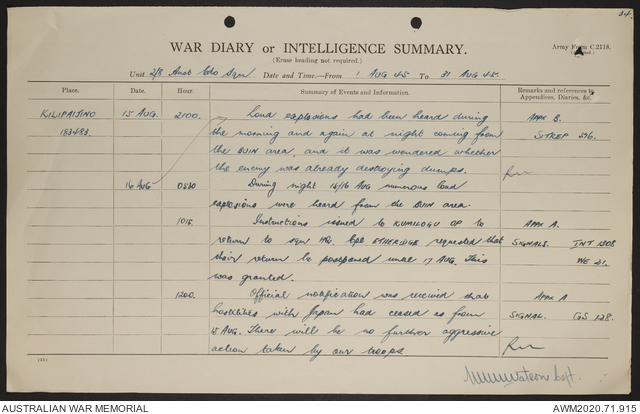 34.
WAR DIARY or INTELLIGENCE SUMMARY.
Army Form C.2118.
(Erase heading not required.)
Unit 2/8 Aust Cdo Sqn Date and Time:—From 1 AUG 45 To 31 AUG 45.
Place. Date. Hour. Summary of Events and Information. Remarks and references to Appendices, Diaries, &c.
KILIPAIJINO 15 AUG. 2100. Loud explosions had been heard during APPX B.
183483. the morning and again at night coming from SITREP 296.
the BUIN area, and it was wondered whether
the enemy was already destroying dumps.
16 AUG 0830 During night 15/16 AUG numerous loud
explosions were heard from the BUIN area.
1015 Instructions issued to KUMILOGU OP to APPX A.
return to sqn HQ. Cpl ETHERIDGE requested that SIGNALS. INT 1308
their return be postponed until 17 AUG. This WE 21.
was granted.
1200. Official notification was received that APPX A
hostilities with Japan had ceased as from SIGNAL. GS 128.
15 AUG. There will be no further aggressive
action taken by our troops.
Capt.
AUSTRALIAN WAR MEMORIAL
AWM2020.71.915